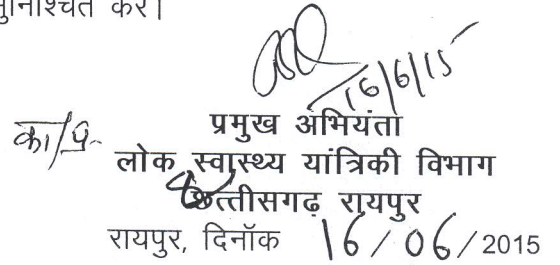 सुनिश्चित करें।
16/6/15
प्रमुख अभियंता
का/प्र-
लोक स्वास्थ्य यांत्रिकी विभाग
छत्तीसगढ़ रायपुर
रायपुर, दिनॉक 16/06/2015